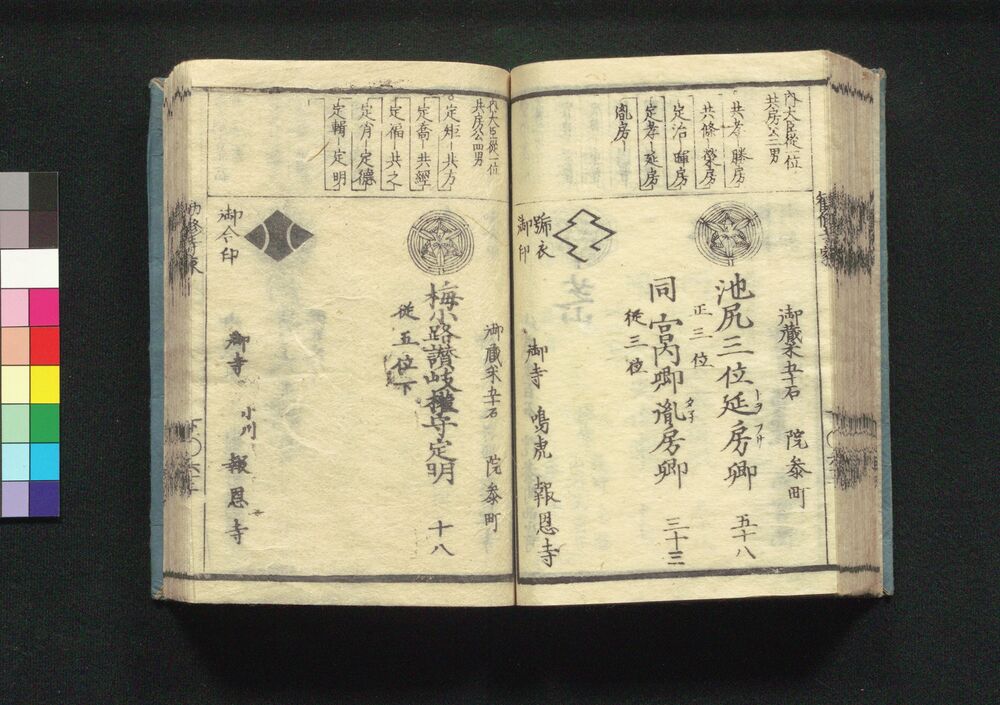 内大臣従一位
共房公三男
共孝─勝房
共條─榮房
定治─暉房
定孝─延房
胤房─
御藏米五十石 院参町
池尻三位延房卿 五十八
トヲ フサ
正三位
同 宮内卿胤房卿 三十三
タネ
従三位
號衣
御印
御寺 鳴虎 報恩寺
内大臣従一位
共房公四男
定矩─共方
定喬─共經
定福─共之
定肖─定德
定輯─定明
御藏米五十石 院参町
梅小路讃岐権守定明 十八
従五位下
御合印
御寺 小川 報恩寺